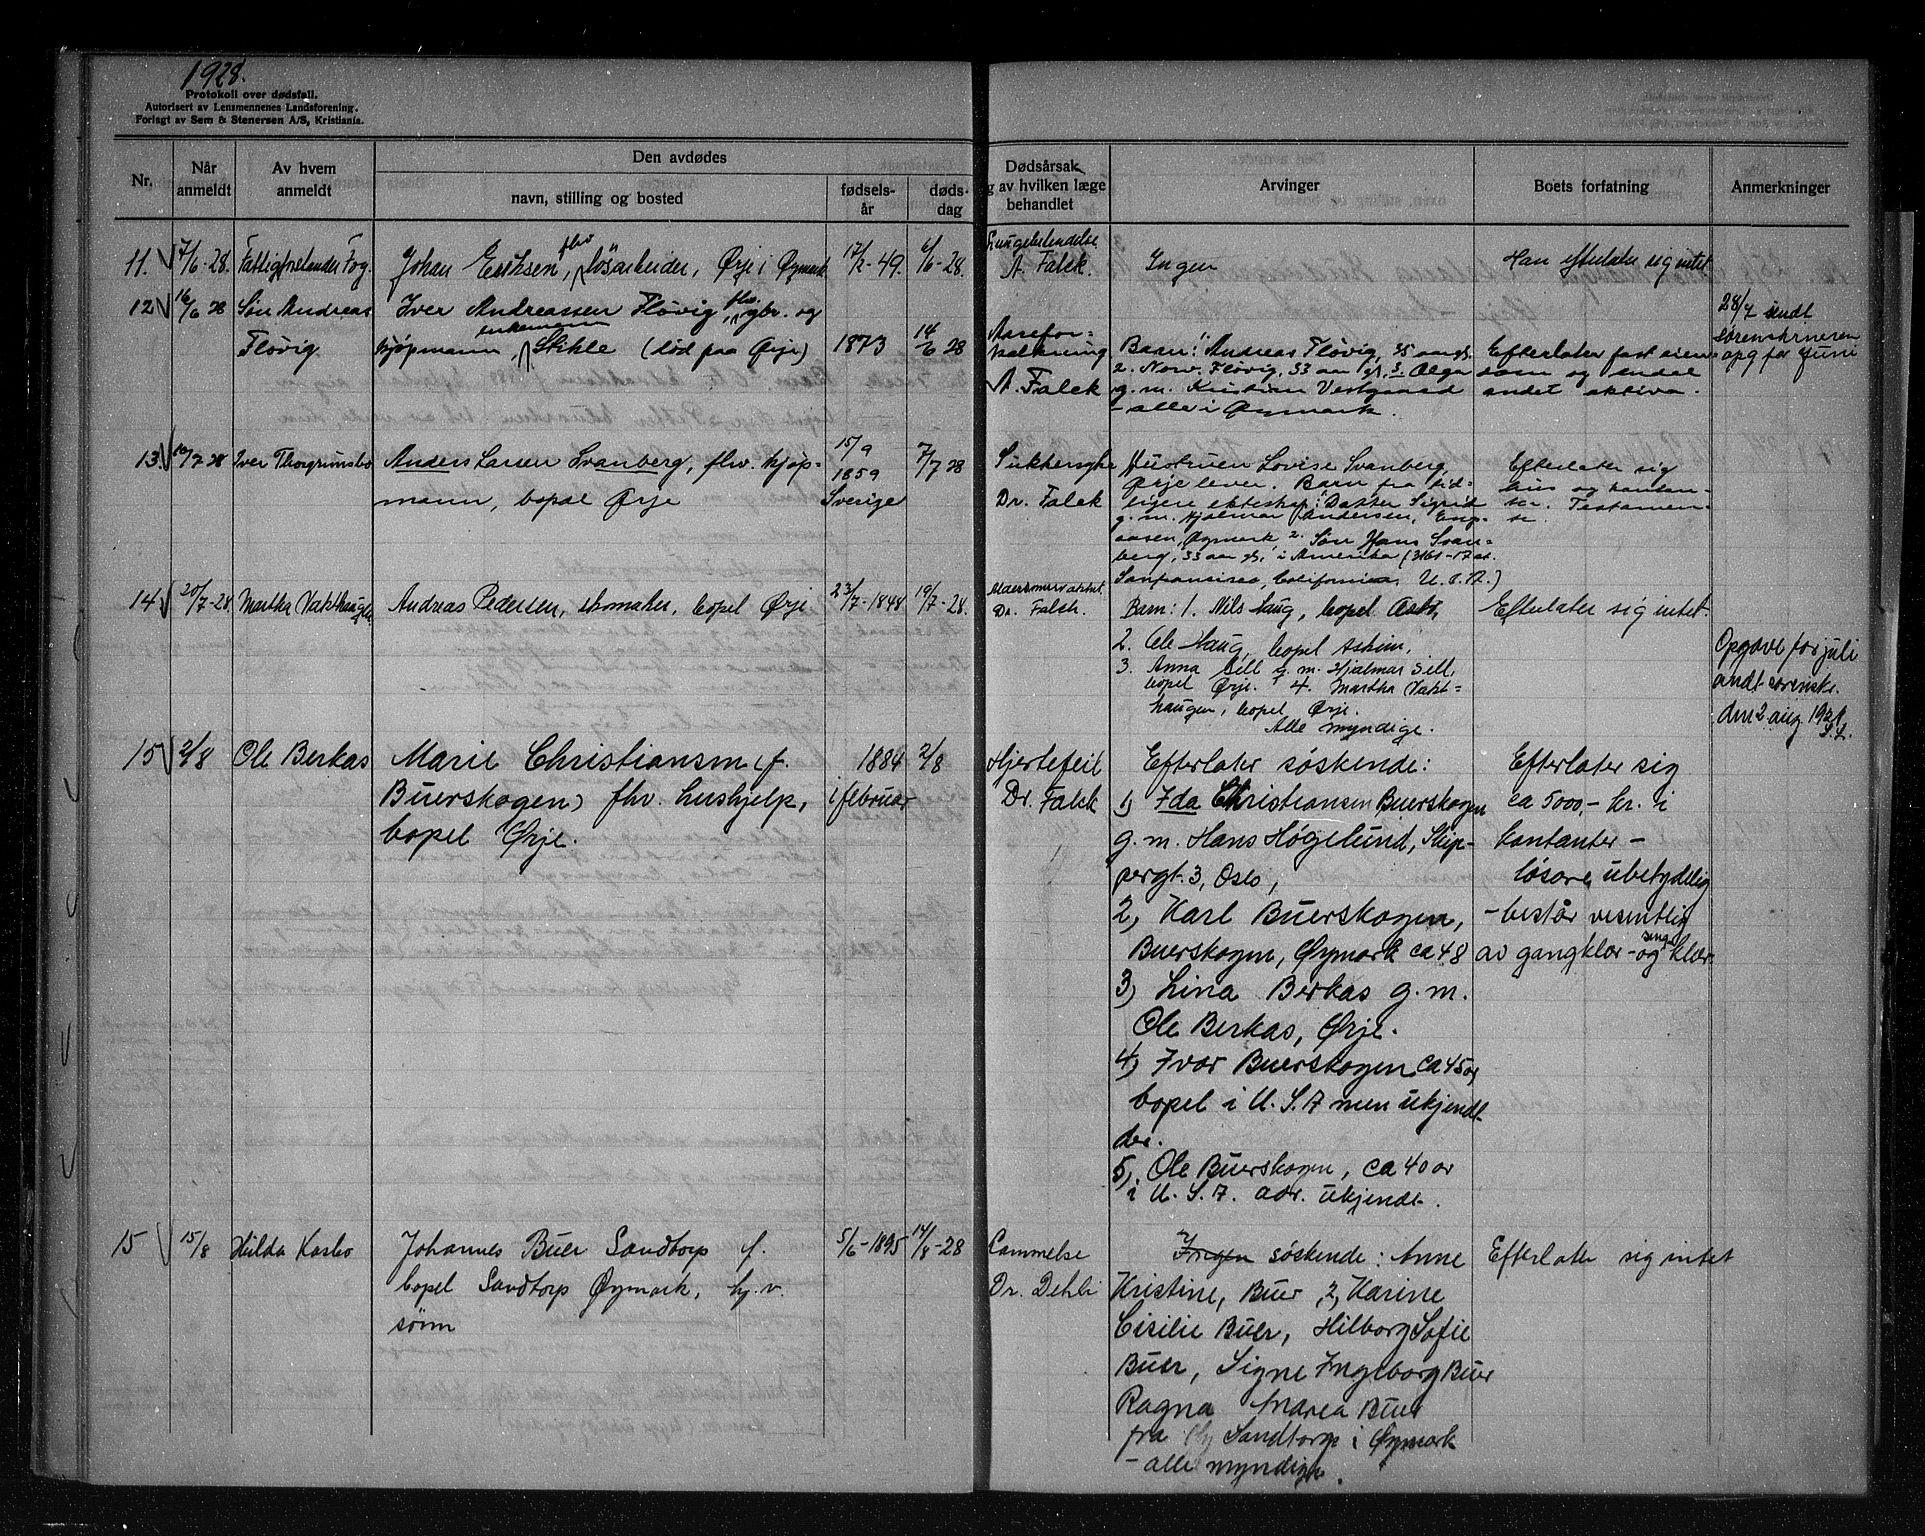 1928.
Protokoll over dødsfall.
Autorisert av Lensmennenes Landsforening.
Forlagt av Sem & Stenersen A/S, Kristiania.
Nr.
Når anmeldt
Av hvem anmeldt
Den avdødes
navn, stilling og bosted
fødsels-år
døds-dag
Dødsårsak
og av hvilken læge
behandlet
Arvinger
Boets forfatning
Anmerkninger
11. 7/6-28. Fattigforstander Fog. Johan Eriksen, fhv løsarbeider, Ørje i Øymark 17/2-49. 6/6-28.
A. Falck.
Ingen
Han efterlater sig intet
12 16/6 28 Søn Andreas
Fløvig.
Iver Andreassen Fløvig, fhv. gbr. og
kjøpmann, enkemann Stikle (død paa Ørje) 1873 14/6 28
Aarefor-
kalkning
A. Falck
Barn: 1. Andreas Fløvig, 35 aar gl.
2. Norv. Fløvig, 33 aar gl, 3. Olga
g. m. Kristian Vestgaard
- alle i Øymark.
Efterlater fast eien-
dom og endel
andet aktiva.
28/7 sendt
sorenskriveren
opg for juni
13 10/7 28 Iver Thorgrimsbo Anders Larsen Svanberg, fhv. kjøp-
mann, bopæl Ørje
15/9
1859
Sverige
7/7 28
Sukkersyke
Dr. Falck
Hustruen Lovise Svanberg,
Ørje lever. Barn fra tid-
ligere ekteskap: 1 Datter Sigrid
g. m. Hjalmar Andersen, Eng-
aasen, Øymark 2. Søn Hans Svan-
berg, 33 aar gl, i Amerika (3161-17 st.
Sanfransisco, California, U.S.A.)
Efterlater sig
hus og kontan-
ter. Testamen-
te.
14 20/7-28. Martha Vakthaugen Andreas Pedersen, skomaker, bopel Ørje 23/7-1848 19/7-28.
Alderdomssvakhet.
Dr. Falch.
Barn: 1. Nils Haug, bopel Oslo,
2. Ole Haug, bopel Askim.
3. Anna Sell g. m. Hjalmar Sell,
bopel Ørje. 4. Martha Vakt-
haugen, bopel Ørje.
Alle myndige.
Efterlater sig intet.
Opgave for juli
sendt sorenskr.
den 2 aug 1928
15 2/8 Ole Berkas Marie Christiansen f.
Buerskogen) fhv. hushjelp,
bopel Ørje.
1884
i februar
2/8
Hjertefeil
Dr. Falck
Efterlater søskende:
1) Ida Christiansen Buerskogen
g. m. Hans Høgelund, Skip-
pergt. 3, Oslo,
2) Karl Buerskogen,
Buerskogen, Øymark ca 48
3) Lina Berkas g. m.
Ole Berkas, Ørje.
4) Ivar Buerskogen ca 45 år
bopel i U.S.A men ukjendt
5). Ole Buerskogen, ca 40 år
i U.S.A. adr. ukjendt.
Efterlater sig
ca 5000,- kr. i
kontanter -
løsøre ubetydelig
- består vesentlig
av gangklær - og sengklær
15 15/8 Hilda Kasbo Johannes Buer Sandtorp f.
bopel Sandtorp Øymark, hj. v.
sønn
5/6-1895 14/8-28
Lammelse
Dr. Dehli
Ingen søskende: Anne
Kristine, Buer 2, Karine
Cisilie Buer, Hilborg Sofie
Buer, Signe Ingeborg Buer
Ragna Andrea Buer
fra Sandtorp i Øymark
- alle myndige.
Efterlater sig intet